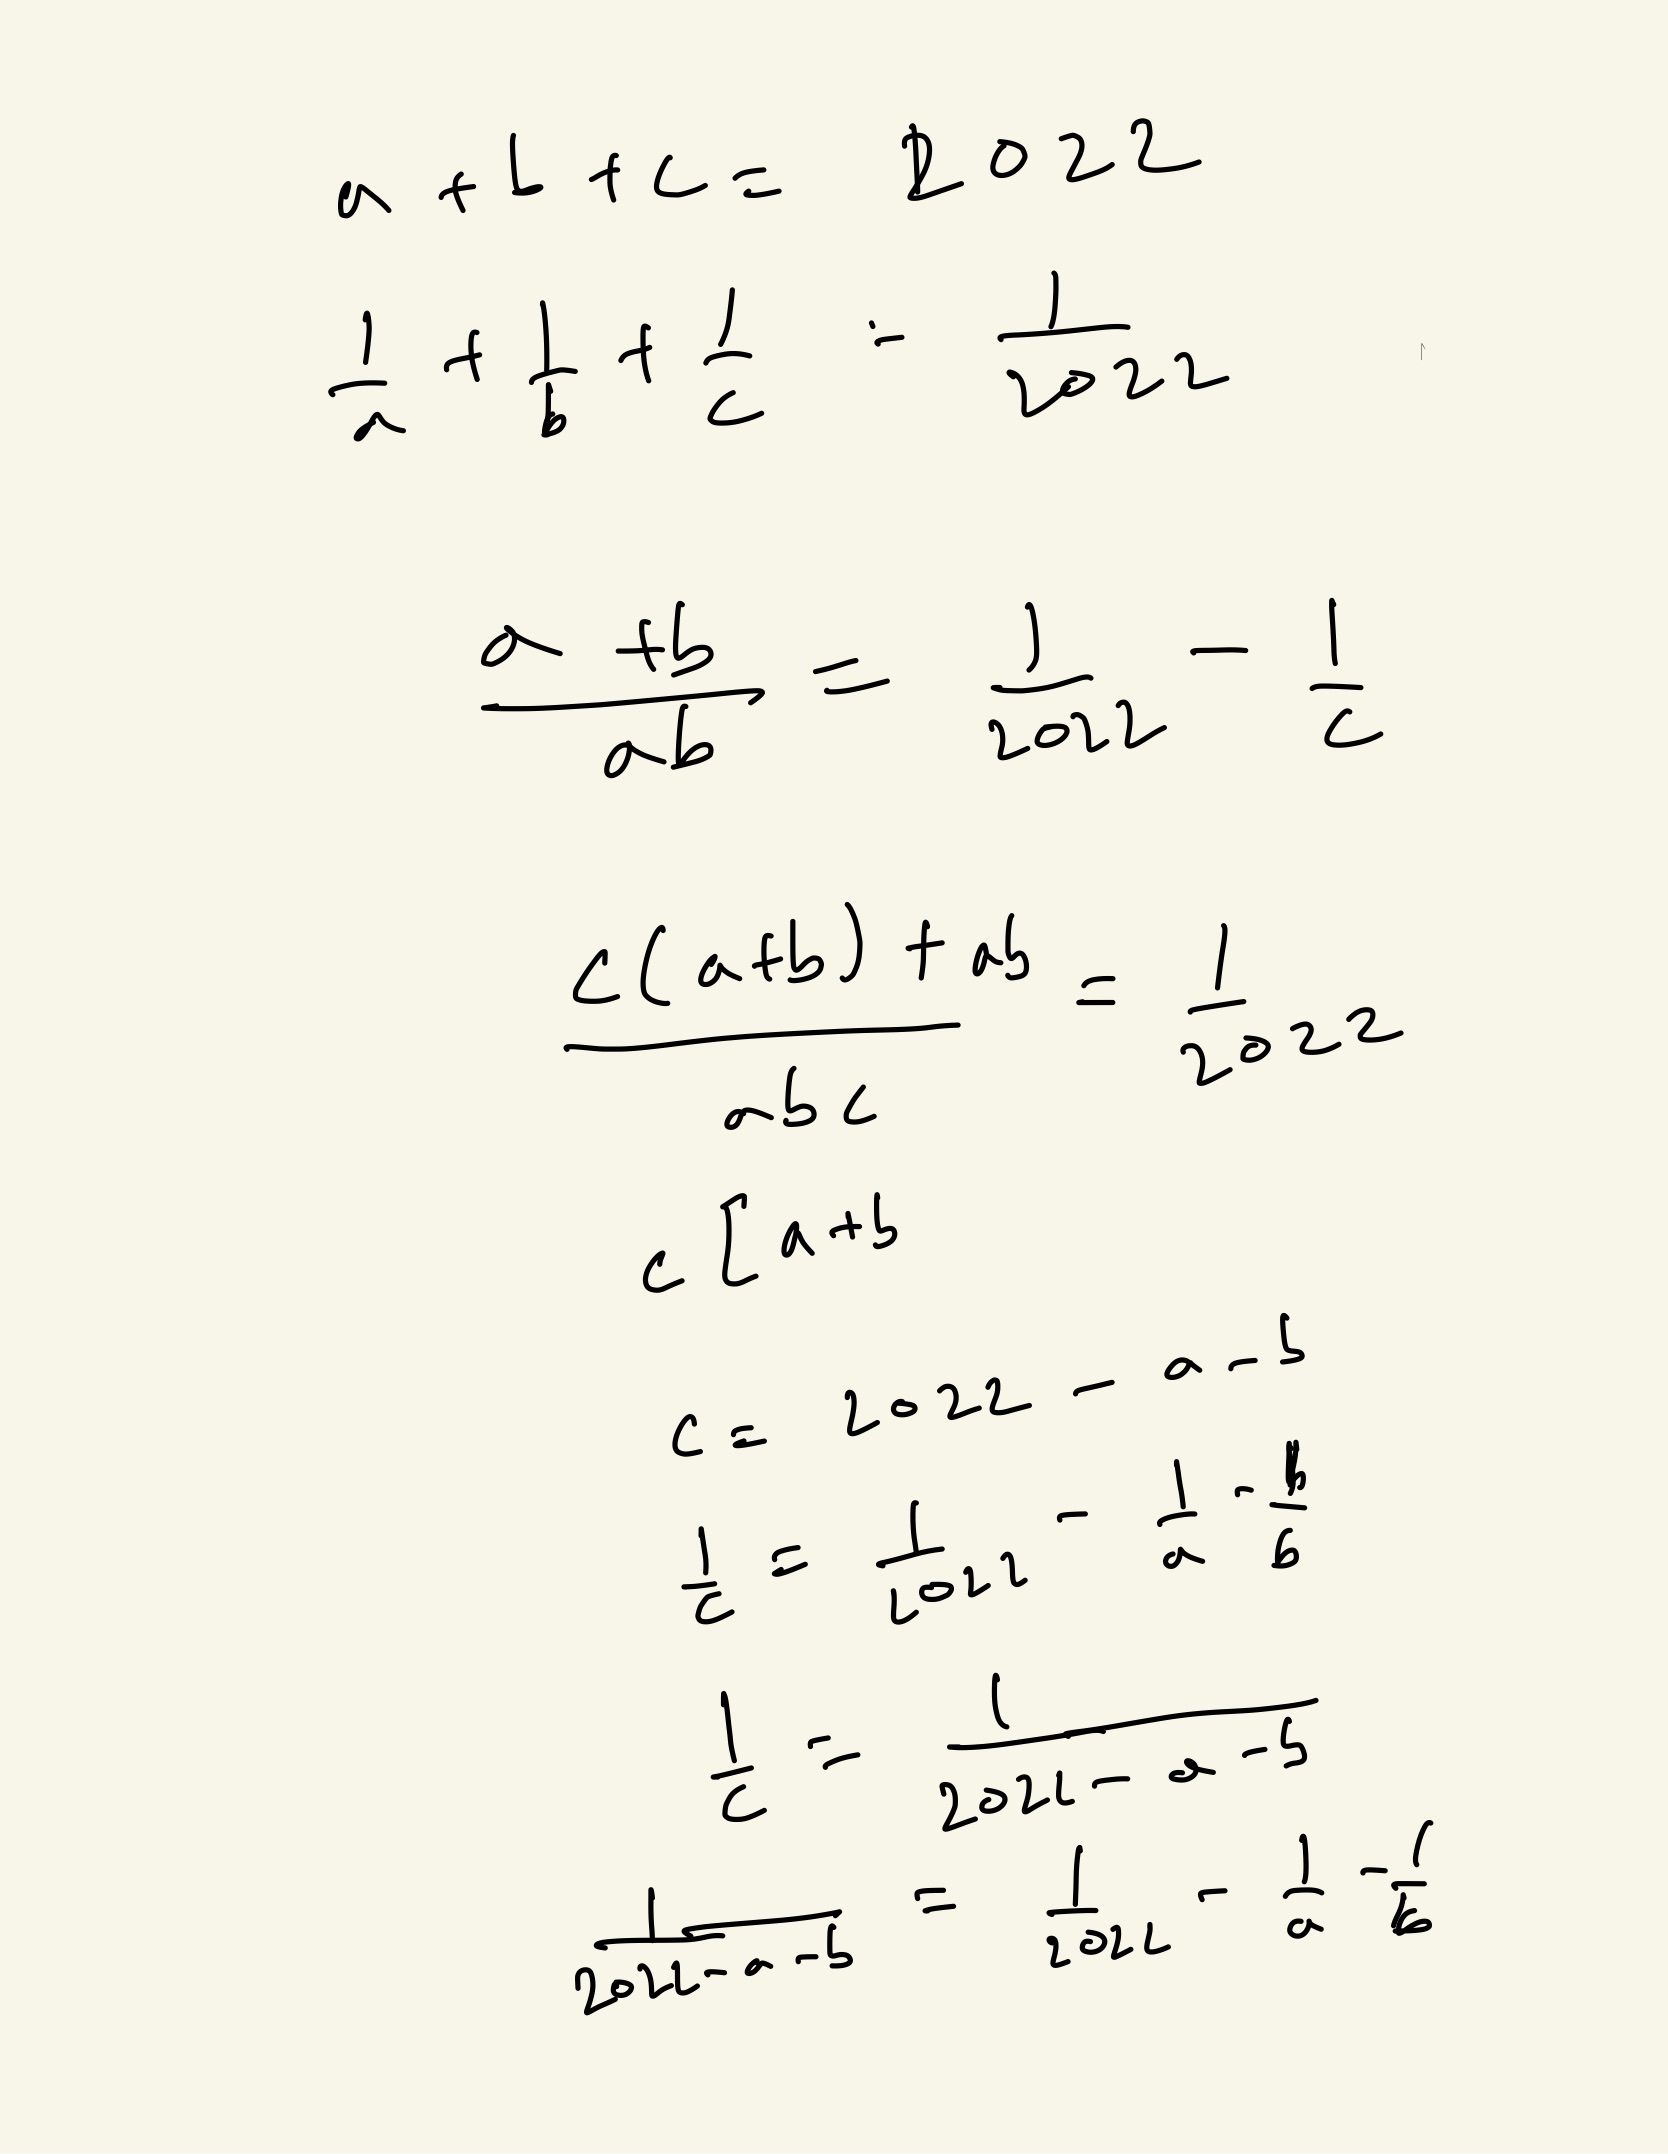 a + b + c = 2022
1/a + 1/b + 1/c = 1/2022
(a + b)/ab = 1/2022 - 1/c
(c(a+b) + ab)/abc = 1/2022
c [a+b
c = 2022 - a - b
1/c = 1/2022 - 1/a - 1/b
1/c = 1/(2022 - a - b)
1/(2022 - a - b) = 1/2022 - 1/a - 1/b